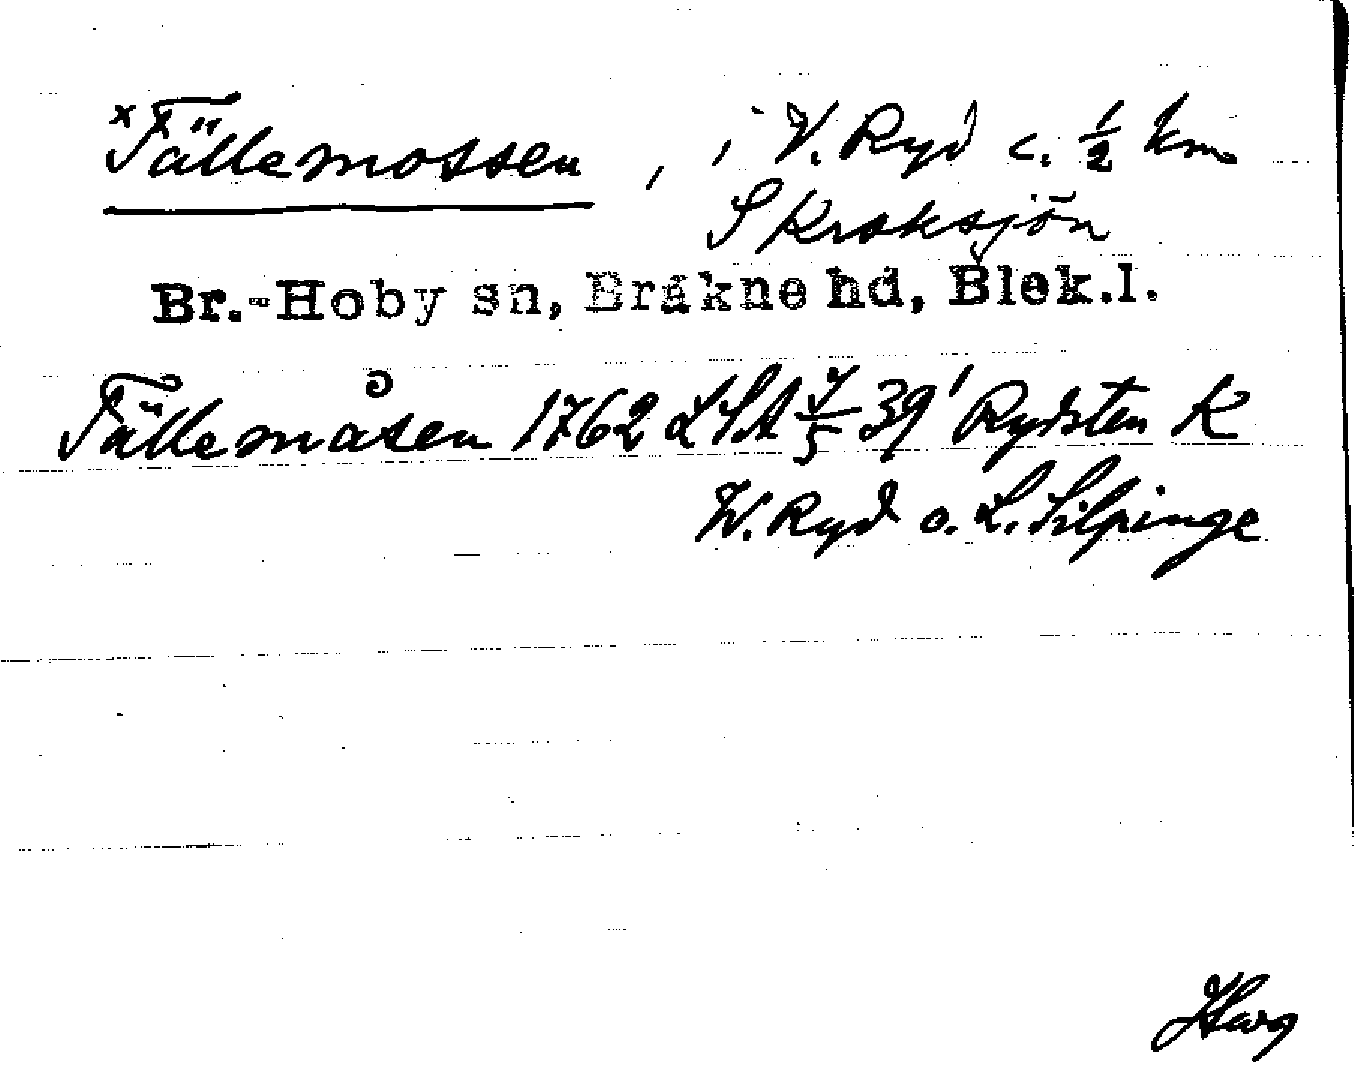 ×Tällemossen, i V. Ryd c. 1/2 km
S Kroksjön
Br.-Hoby sn, Bräkne hd, Blek.l.
Tällemåsen 1762 LSA 7/5 39' Rydsten K
W. Ryd o. L. Silpinge